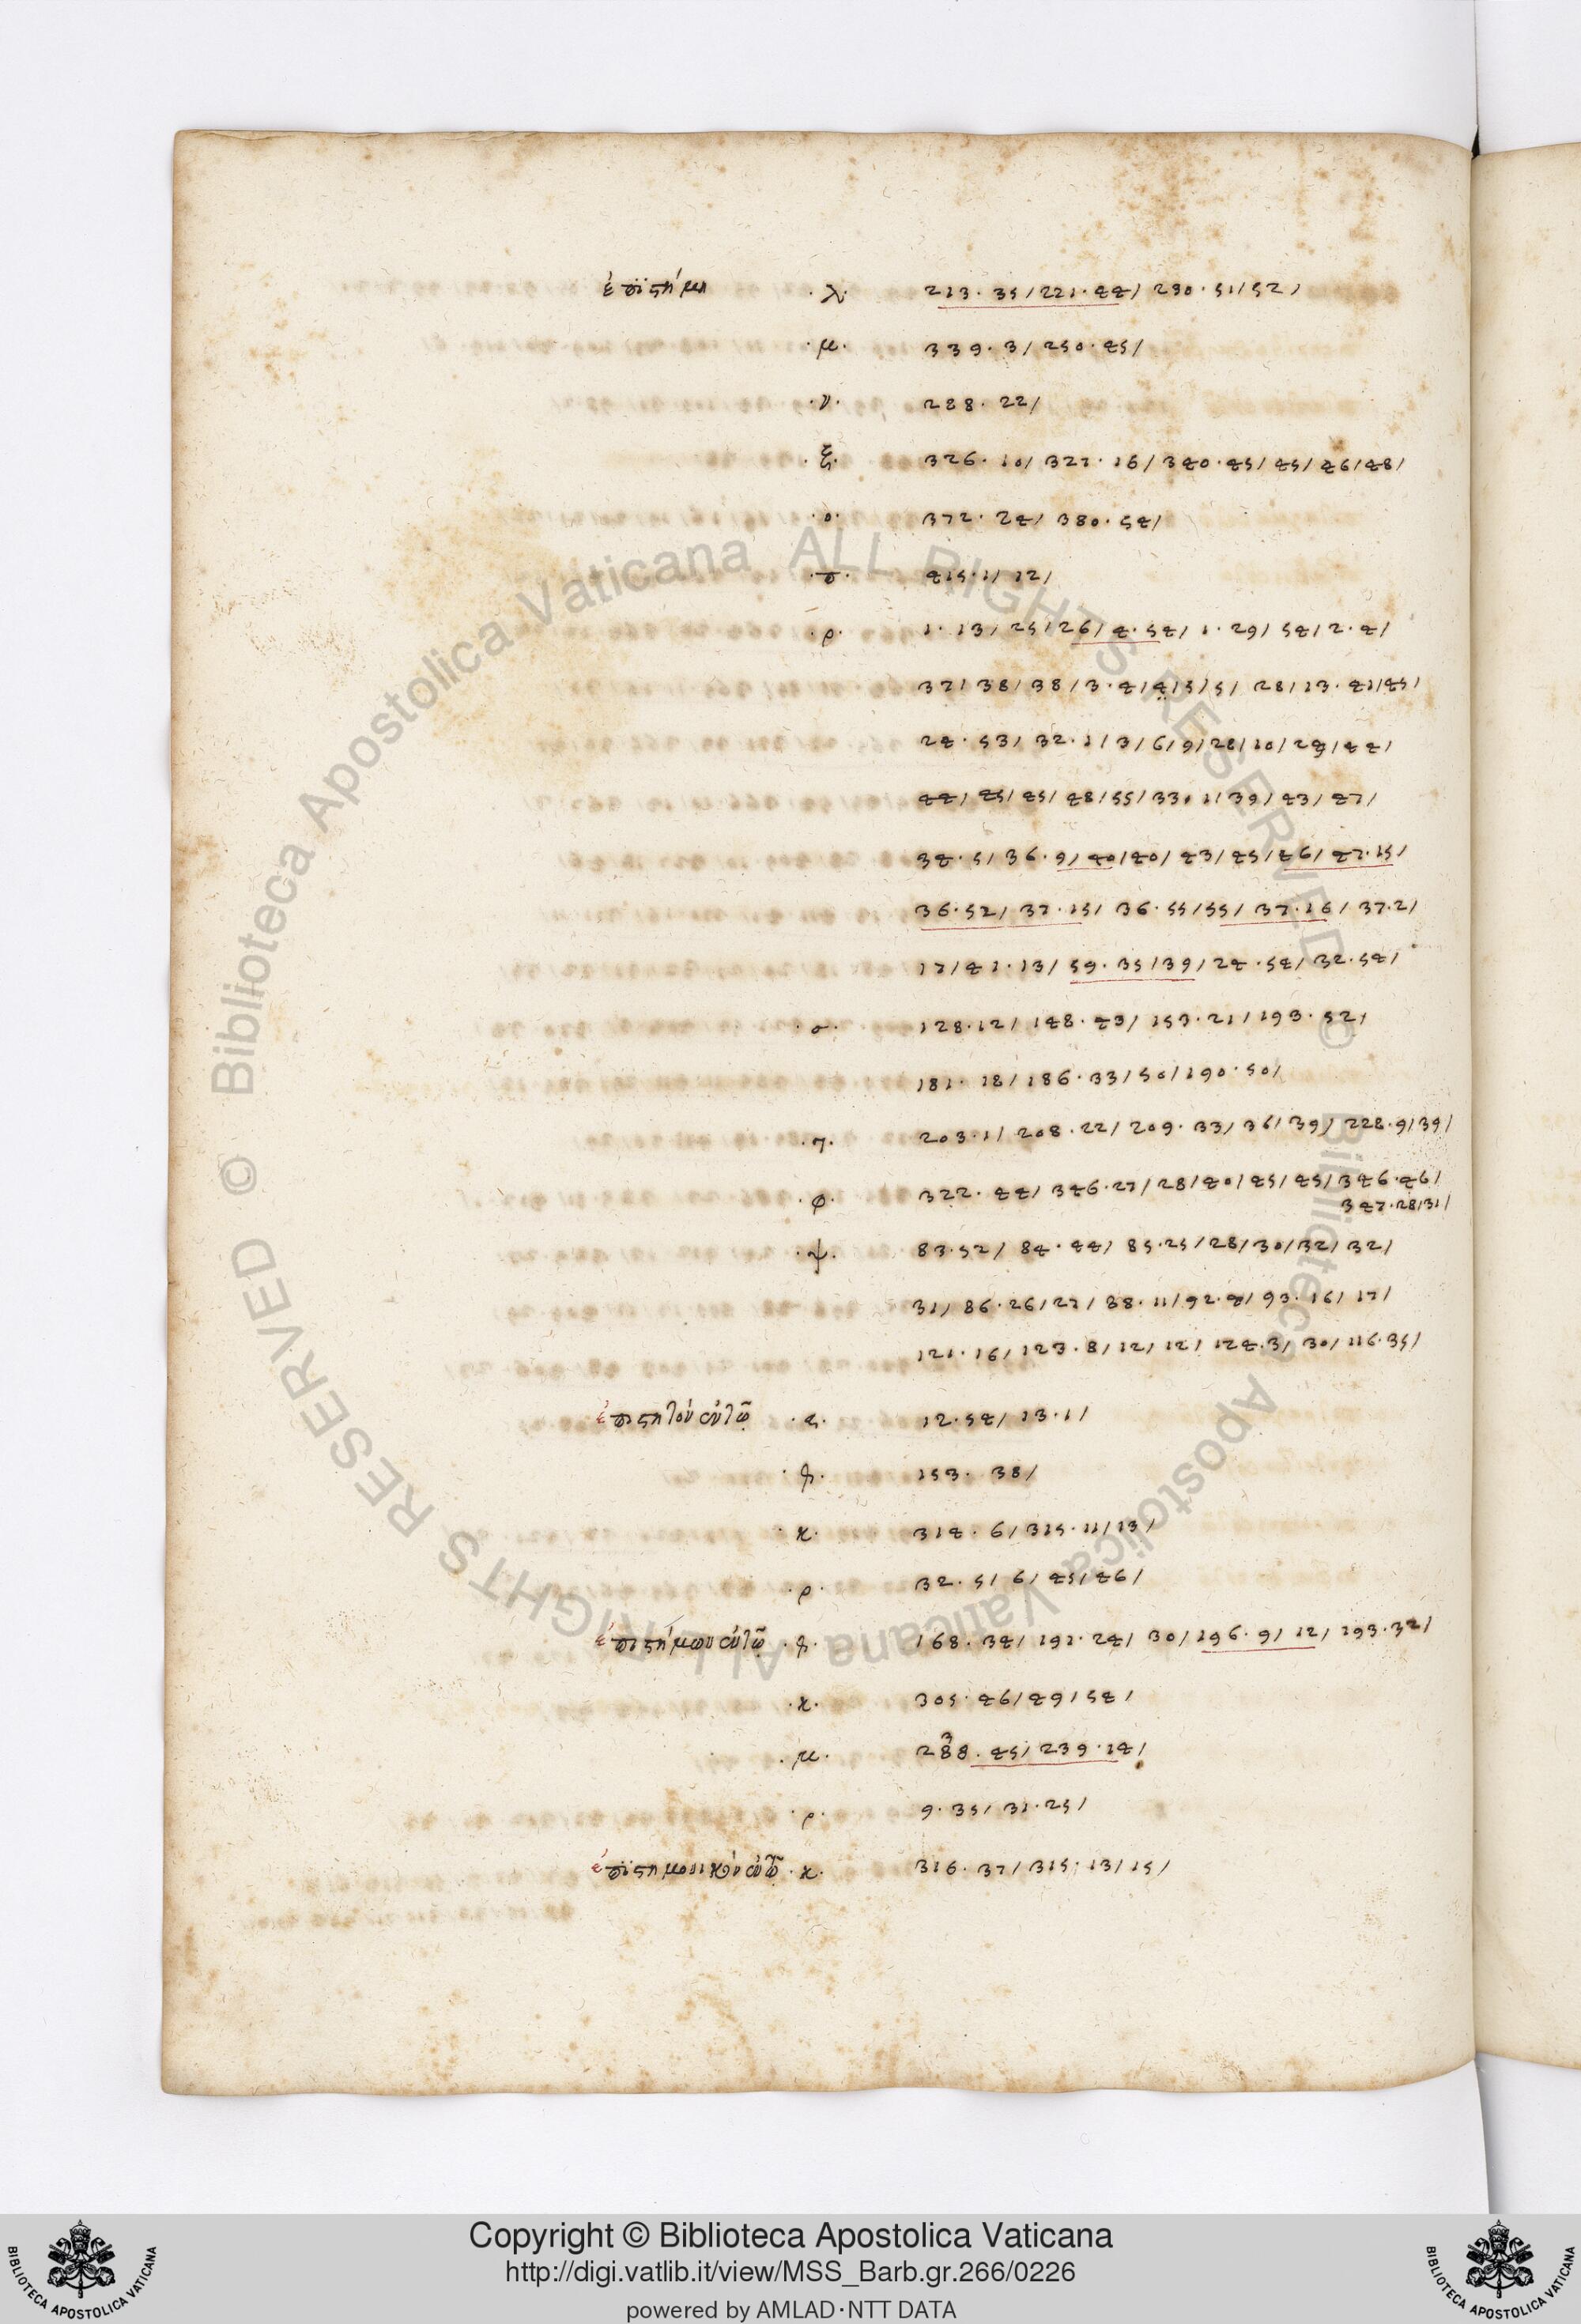 ἐπιστήμη ·λ· 213·35/221·44/ 230·51/52/
·μ· 339·3/ 250·45/
·ν· 288·22/
·ξ· 326·10/ 327·16/ 340·45/ 45/ 46/48/
·ο· 372·24/ 380·54/
·π· 415·1/ 12/
·ρ· 1·13/ 25/26/ 4·54/ 1·29/ 54/2·4/
37/ 38/ 38/3·4/4/5/5/ 28/13·41/45/
24·53/ 32·1/3/6/9/28/10/29/44/
44/ 45/45/ 48/55/330 1/39/ 43/ 47/
34·5/36·9/40/40/ 43/45/46/ 47·15/
36·52/ 37·15/ 36·55/55/ 37·16/ 37·2/
17/41·13/ 59·35/39/ 24·54/ 32·54/
·σ· 128·12/ 148·43/ 153·21/193·52/
181·18/186·33/50/190·50/
·τ· 203·1/ 208·22/ 209·33/ 36/39/ 228·9/39/
·φ· 322·44/ 346·27/28/40/45/45/346·46/
347·28/31/
·ψ· 83·52/ 84·44/ 85·25/28/30/32/ 32/
31/ 86·26/27/ 38·11/92·8/93·16/ 17/
121·16/ 123·8/12/ 12/ 124·3/ 30/ 116·35/
ἐπιστητὸν αὐτῷ ·ς· 12·54/ 13·1/
153·38/
·κ· 314·6/315·11/13/
·ρ· 32·5/6/ 45/46/
ἐπιστήμων αὐτῷ 168·34/ 191·24/ 30/196·9/ 12/ 193·32/
·κ· 305·46/49/54/
·μ· 288·45/ 239·14/
·ρ· 9·35/ 31·25/
ἐπιστημονικὸν αὐτῷ ·κ· 316·37/315·13/15/
© Biblioteca Apostolica Vaticana ALL RIGHTS RESERVED
© Biblioteca Apostolica Vaticana ALL RIGHTS RESERVED
Copyright © Biblioteca Apostolica Vaticana
http://digi.vatlib.it/view/MSS_Barb.gr.266/0226
powered by AMLAD·NTT DATA
BIBLIOTECA APOSTOLICA VATICANA
BIBLIOTECA APOSTOLICA VATICANA